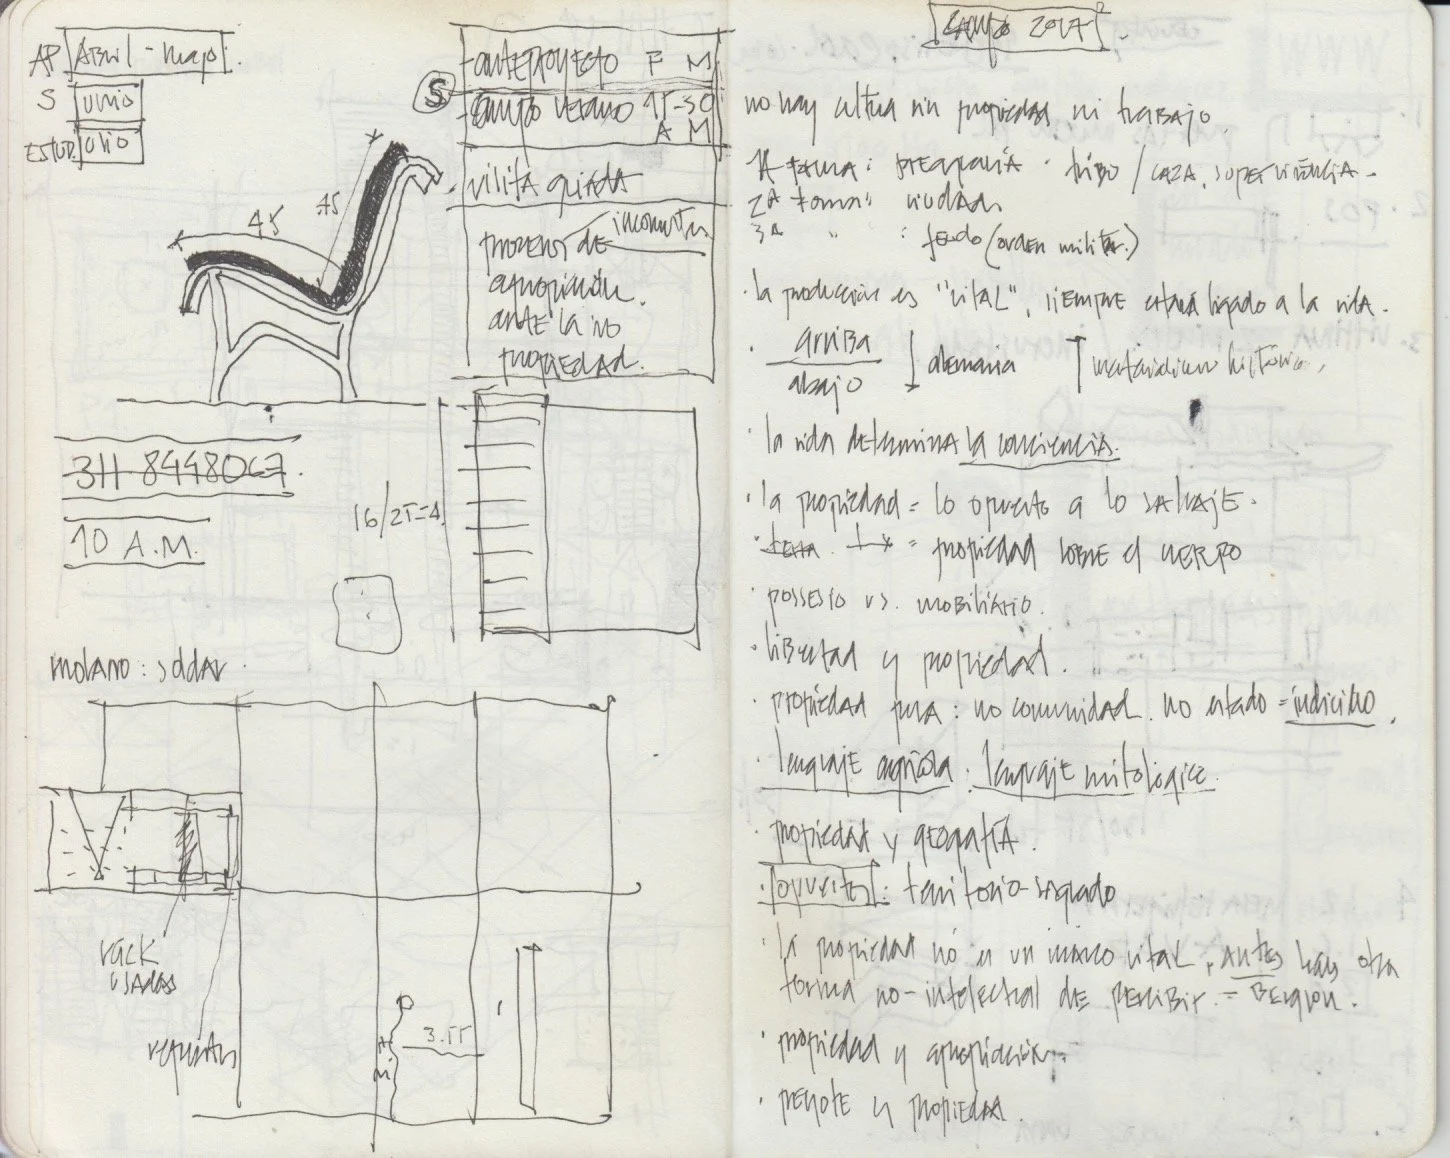 AP Abril - mayo.
S junio
ESTUD. julio
anteproyecto F M
S
campo verano 15-30
A M
visita guiada
proceso de
apropiación.
ante la no
propiedad.
45
45
311 8448067.
10 A.M.
16/25=4
molano: soldar.
rack
usadas
3.55
campo 2017²
no hay cultura sin propiedad ni trabajo.
1A forma: tribu / caza, supervivencia -
2A forma: ciudad.
3A " : feudo (orden militar.)
· la producción es "vital", siempre estará ligado a la vida.
· arriba
abajo
alemania
materialismo histórico.
· la vida determina la conciencia.
· la propiedad = lo opuesto a lo salvaje.
· = propiedad sobre el cuerpo
· possesio vs. mobiliario.
· libertad y propiedad.
· propiedad pura: no comunidad. no estado =
· lenguaje agrícola. lenguaje mitológico.
· propiedad y geografía.
: territorio-sagrado
· la propiedad no es un marco vital, antes hay otra
forma no-intelectual de percibir. = Bergson.
· propiedad y apropiación.
· peyote y propiedad.